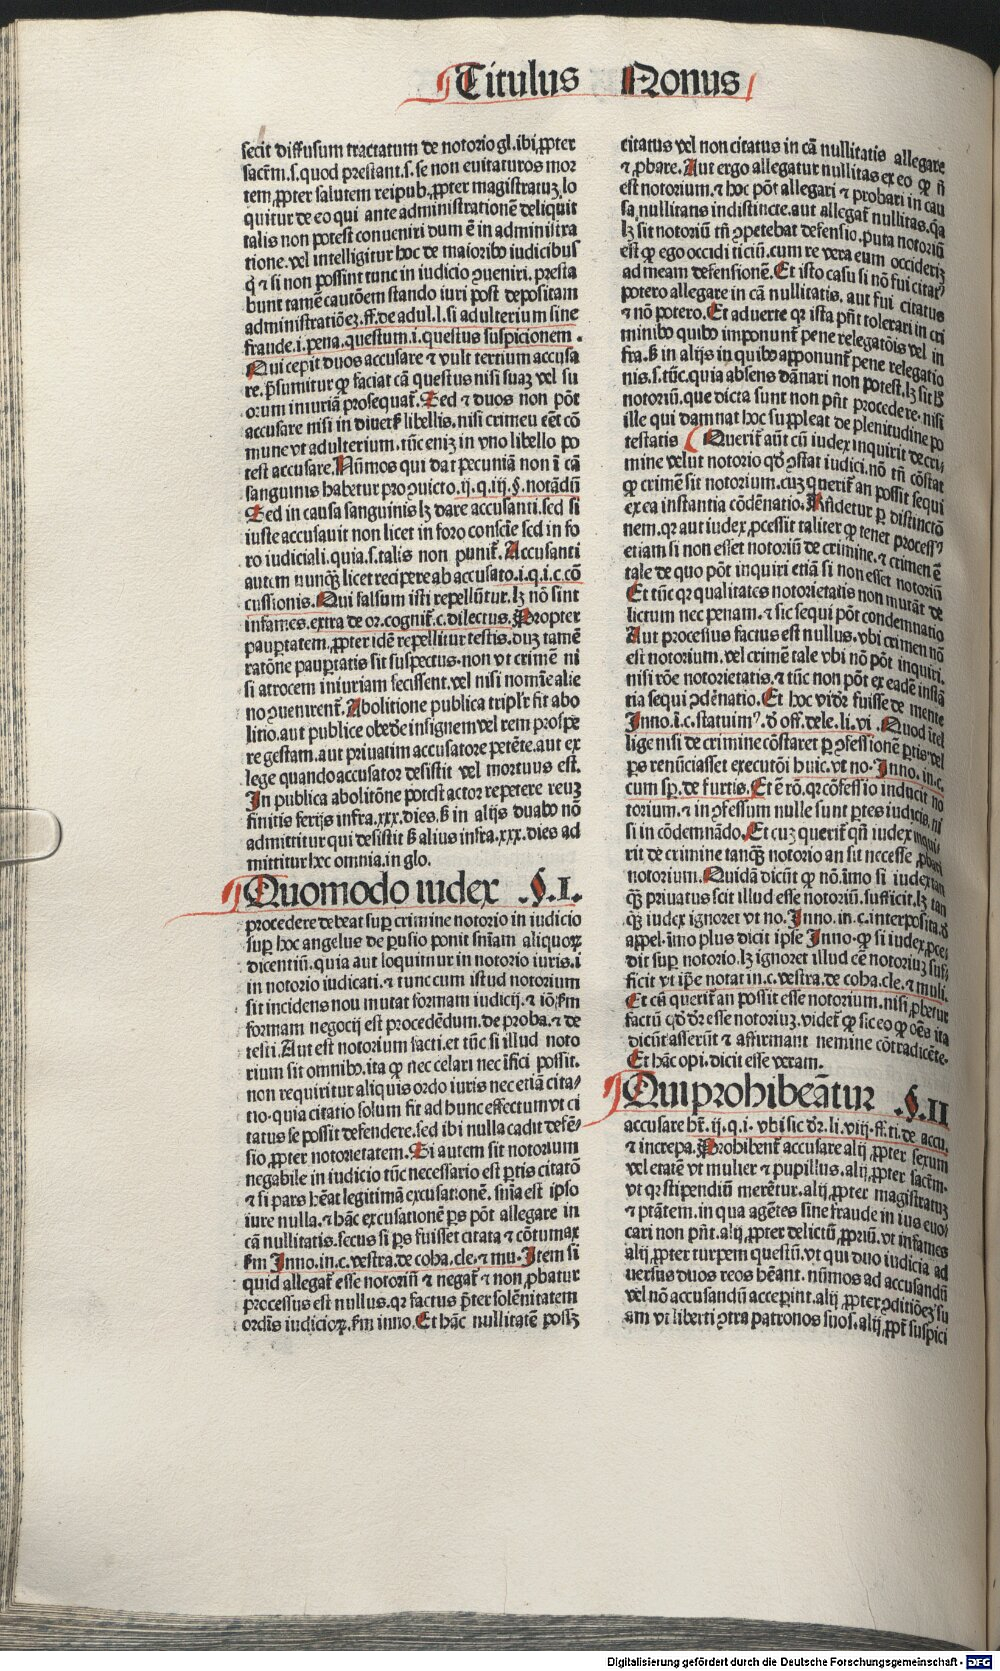 Titulus Nonus
fecit diffusum tractatum de notorio gl. ibi, ꝓpter
sacr̄m. s. quod prestant. s. se non euitaturos mor
tem, ꝓpter salutem reipub., ꝓpter magistratuꝫ, lo
quitur de eo qui ante administrationē deliquit
talis non potest conueniri dum ē in administra
tione. vel intelligitur hoc de maioribꝰ iudicibus
q̇ ⁊ si non possint tunc in iudicio ꝯueniri. presta
bunt tamē cautōem stando iuri post depositam
administratiōeꝫ. ff. de adul. l. si adulterium sine
fraude. i. pena. questum. i. questus suspicionem.
Qui cepit duos accusare ⁊ vult tertium accusa
re. p̄sumitur ꝙ faciat cā questus nisi suaꝫ vel su
orum iniuriā prosequat᷑. Sed ⁊ duos non pōt
accusare nisi in diuers̄ libellis, nisi crimeu eēt cō
mune vt adulterium. tūc eniꝫ in vno libello po
test accusare. Nūmos qui dat pecuniā non ī cā
sanguinis habetur pro ꝯuicto. ij. q. iij. §. notādū
Sed in causa sanguinis lꝫ dare accusanti. sed si
iuste accusauit non licet in foro consc̄ie sed in fo
ro iudiciali. quia. s. talis non punit᷑. Accusanti
autem nunqꝫ̄ licet recipere ab accusato. i. q. i. c. cō
cussionis. Qui falsum isti repellūtur. lꝫ nō sint
infames. extra de or. cognit᷑. c. dilectus. Propter
paupertatem, ꝓpter idē repellitur testis. duꝫ tamē
ratōne paupertatis sit suspectus. non vt crimē ni
si atrocem iniuriam fecissent. vel nisi nomīe alie
no ꝯuenirent᷑. Abolitione publica tripl'r fit abo
litio. aut publice ob ed̄e insignem vel rem prospe
re gestam. aut priuatim accusatore petēte. aut ex
lege quando accusator desistit vel mortuus est.
In publica abolitōne potest actor repetere reuꝫ
finitis ferijs infra. xxx. dies. s̄ in alijs duabꝰ nō
admittitur qui desistit s̄ alius infra. xxx. dies ad
mittitur hec omnia. in glo.
Quomodo iudex .§.I.
procedere debeat suꝑ crimine notorio in iudicio
suꝑ hoc angelus de perusio ponit sn̄iam aliquoꝝ
dicentiū. quia aut loquitur in notorio iuris. i
in notorio iudicati. ⁊ tunc cum istud notorium
sit incidens nou mutat formam iudicij. ⁊ iō s̄m
formam negocij est procedēdum. de proba. ⁊ de
testi. Aut est notorium facti. et tūc si illud noto
rium sit omnibꝰ. ita ꝙ nec celari nec īfici possit.
non requiritur aliquis ordo iuris nec etiā cita/
tio. quia citatio solum fit ad hunc effectum vt ci
tatus se possit defendere. sed ibi nulla cadit defē/
sio, ꝓpter notorietatem. Si autem sit notorium
negabile in iudicio tūc necessario est pertis citatō
⁊ si pars hēat legitimā excusationē. sn̄ia est ipso
iure nulla. ⁊ hāc excusationē ꝑs pōt allegare in
cā nullitatis. secus si ꝑs fuisset citata ⁊ cōtumax
s̄m Inno. in. c. vestra. de coha. cle. ⁊ mu. Item si
quid allegat᷑ esse notoriū ⁊ negat᷑ ⁊ non ꝓbatur
processus est nullus. qꝛ factus p̄ter solēnitatem
ordīs iudicioꝝ. s̄m inno. Et hāc nullitatē possꝫ
citatus vel non citatus in cā nullitatis allegare
⁊ ꝓbare. Aut ergo allegatur nullitas ex eo ꝙ n̄
est notorium. ⁊ hoc pōt allegari ⁊ probari in cau
sa nullitatis indistincte. aut allegat᷑ nullitas. qa
lꝫ sit notoriū tn̄ ꝯpetebat defensio. puta notoriū
est ꝙ ego occidi ticiū. cum re vera eum occideriꝫ
ad meam defensionē. Et isto casu si nō fui citat᷒
potero allegare in cā nullitatis. aut fui citatus
⁊ nō potero. Et aduerte qꝛ ista pn̄t tolerari in cri
minibꝰ quibꝰ imponunt᷑ pene relegatōis vel in
fra. s̄ in alijs in quibꝰ apponunt᷑ pene relegatio
nis. s. tūc. quia absens dānari non potest. lꝫ sit s̄
notoriū. que dicta sunt non pn̄t procedere. nisi
ille qui damnat hoc suppleat de plenitudine po
testatis Querit᷑ aūt cū iudex inquirit de cri/
mine velut notorio qd̄ ꝯstat iudici. nō tn̄ cōstat
ꝙ crimē sit notorium. cuꝫ querit᷑ an possit sequi
ex ea instantia cōdēnatio. Rn̄detur ꝑ distinctō
nem. qꝛ aut iudex, ꝓcessit taliter ꝙ tenet process᷒
etiam si non esset notoriū de crimine. ⁊ crimen ē
tale de quo pōt inquiri etiā si non esset notoriū
Et tūc qꝛ qualitates notorietatis non mutāt de
lictum nec penam. ⁊ sic sequi pōt condemnatio
Aut processus factus est nullus. vbi crimen nō
est notorium. vel crimē tale vbi nō pōt inquiri.
nisi rōe notorietatis. ⁊ tūc non pōt ex eadē instā
tia sequi ꝯdēnatio. Et hoc vidr̄ fuisse de mente
Inno. ī. c. statuim᷒. d̄ off. dele. li. vi. Quod ītel
lige nisi de crimine cōstaret ꝑ ꝯfessionē pertis vel
ꝑs renūciasset executōi huic. vt no. Inno. in. c.
cum sꝑ. de furtis. Et ē rō. qꝛ cōfessio inducit no
torium. ⁊ in ꝯfessum nulle sunt ꝑtes iudicis. ni
si in cōdemnādo. Et cuꝫ querit᷑ qn̄ iudex inqui/
rit de crimine tanqꝫ̄ notorio an sit necesse ꝓbari
notorium. Quidā dicūt ꝙ nō. īmo si iudex tan
qꝫ̄ priuatus scit illud esse notoriū. sufficit. lꝫ tan
qꝫ̄ iudex ignoret vt no. Inno. in. c. interposita. d̄
appel. īmo plus dicit ipse Inno. ꝙ si iudex, ꝓce/
dit suꝑ notorio. lꝫ ignoret illud cē notoriuꝫ suf/
ficit vt ip̄e notat in. c. vestra. de coha. cle. ⁊ muli.
Et cū querit᷑ an possit esse notorium. nisi ꝓbetur
factū qd̄ dr̄ esse notoriuꝫ. videt᷑ ꝙ sic eo ꝙ oēs ita
dicūt asserūt ⁊ affirmant nemine cōtradicēte.
Et hāc opi. dicit esse veram.
Qui prohibeātur .§.II
accusare hr̄. ij. q. i. vbi sic dr̄. li. viij. ff. ti. de accu.
⁊ increpa. Prohibent᷑ accusare alij, ꝓpter sexum
vel etatē vt mulier ⁊ pupillus. alij, ꝓpter sacr̄m.
vt qꝛ stipendiū merētur. alij, ꝓpter magistratuꝫ
⁊ ptātem. in qua agētes sine fraude in ius euo/
cari non pn̄t. alij, ꝓpter delictū, ꝓpriū. vt infames
alij, ꝓpter turpem questū. vt qui duo iudicia ad
uersus duos reos hēant. nūmos ad accusandū
vel nō accusandū acceperint. alij, ꝓpter ꝯditiōeꝫ su
am vt liberti ꝯtra patronos suos. alij, ꝓpt᷑ suspici
Digitalisierung gefördert durch die Deutsche Forschungsgemeinschaft - DFG